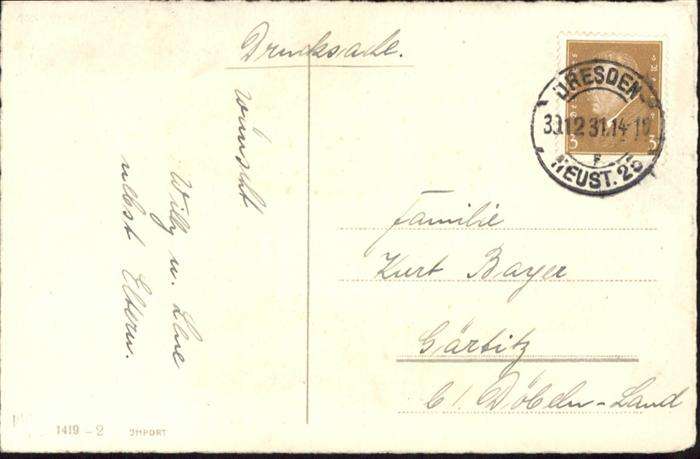 Drucksache.
wünscht
Willy u. Lene
nebst Eltern.
DRESDEN
30.12.31.14-
F
NEUST. 25
3 3
Familie
Kurt Bayer
Gärtitz
b/ Döbeln-Land
1419-2 IMPORT